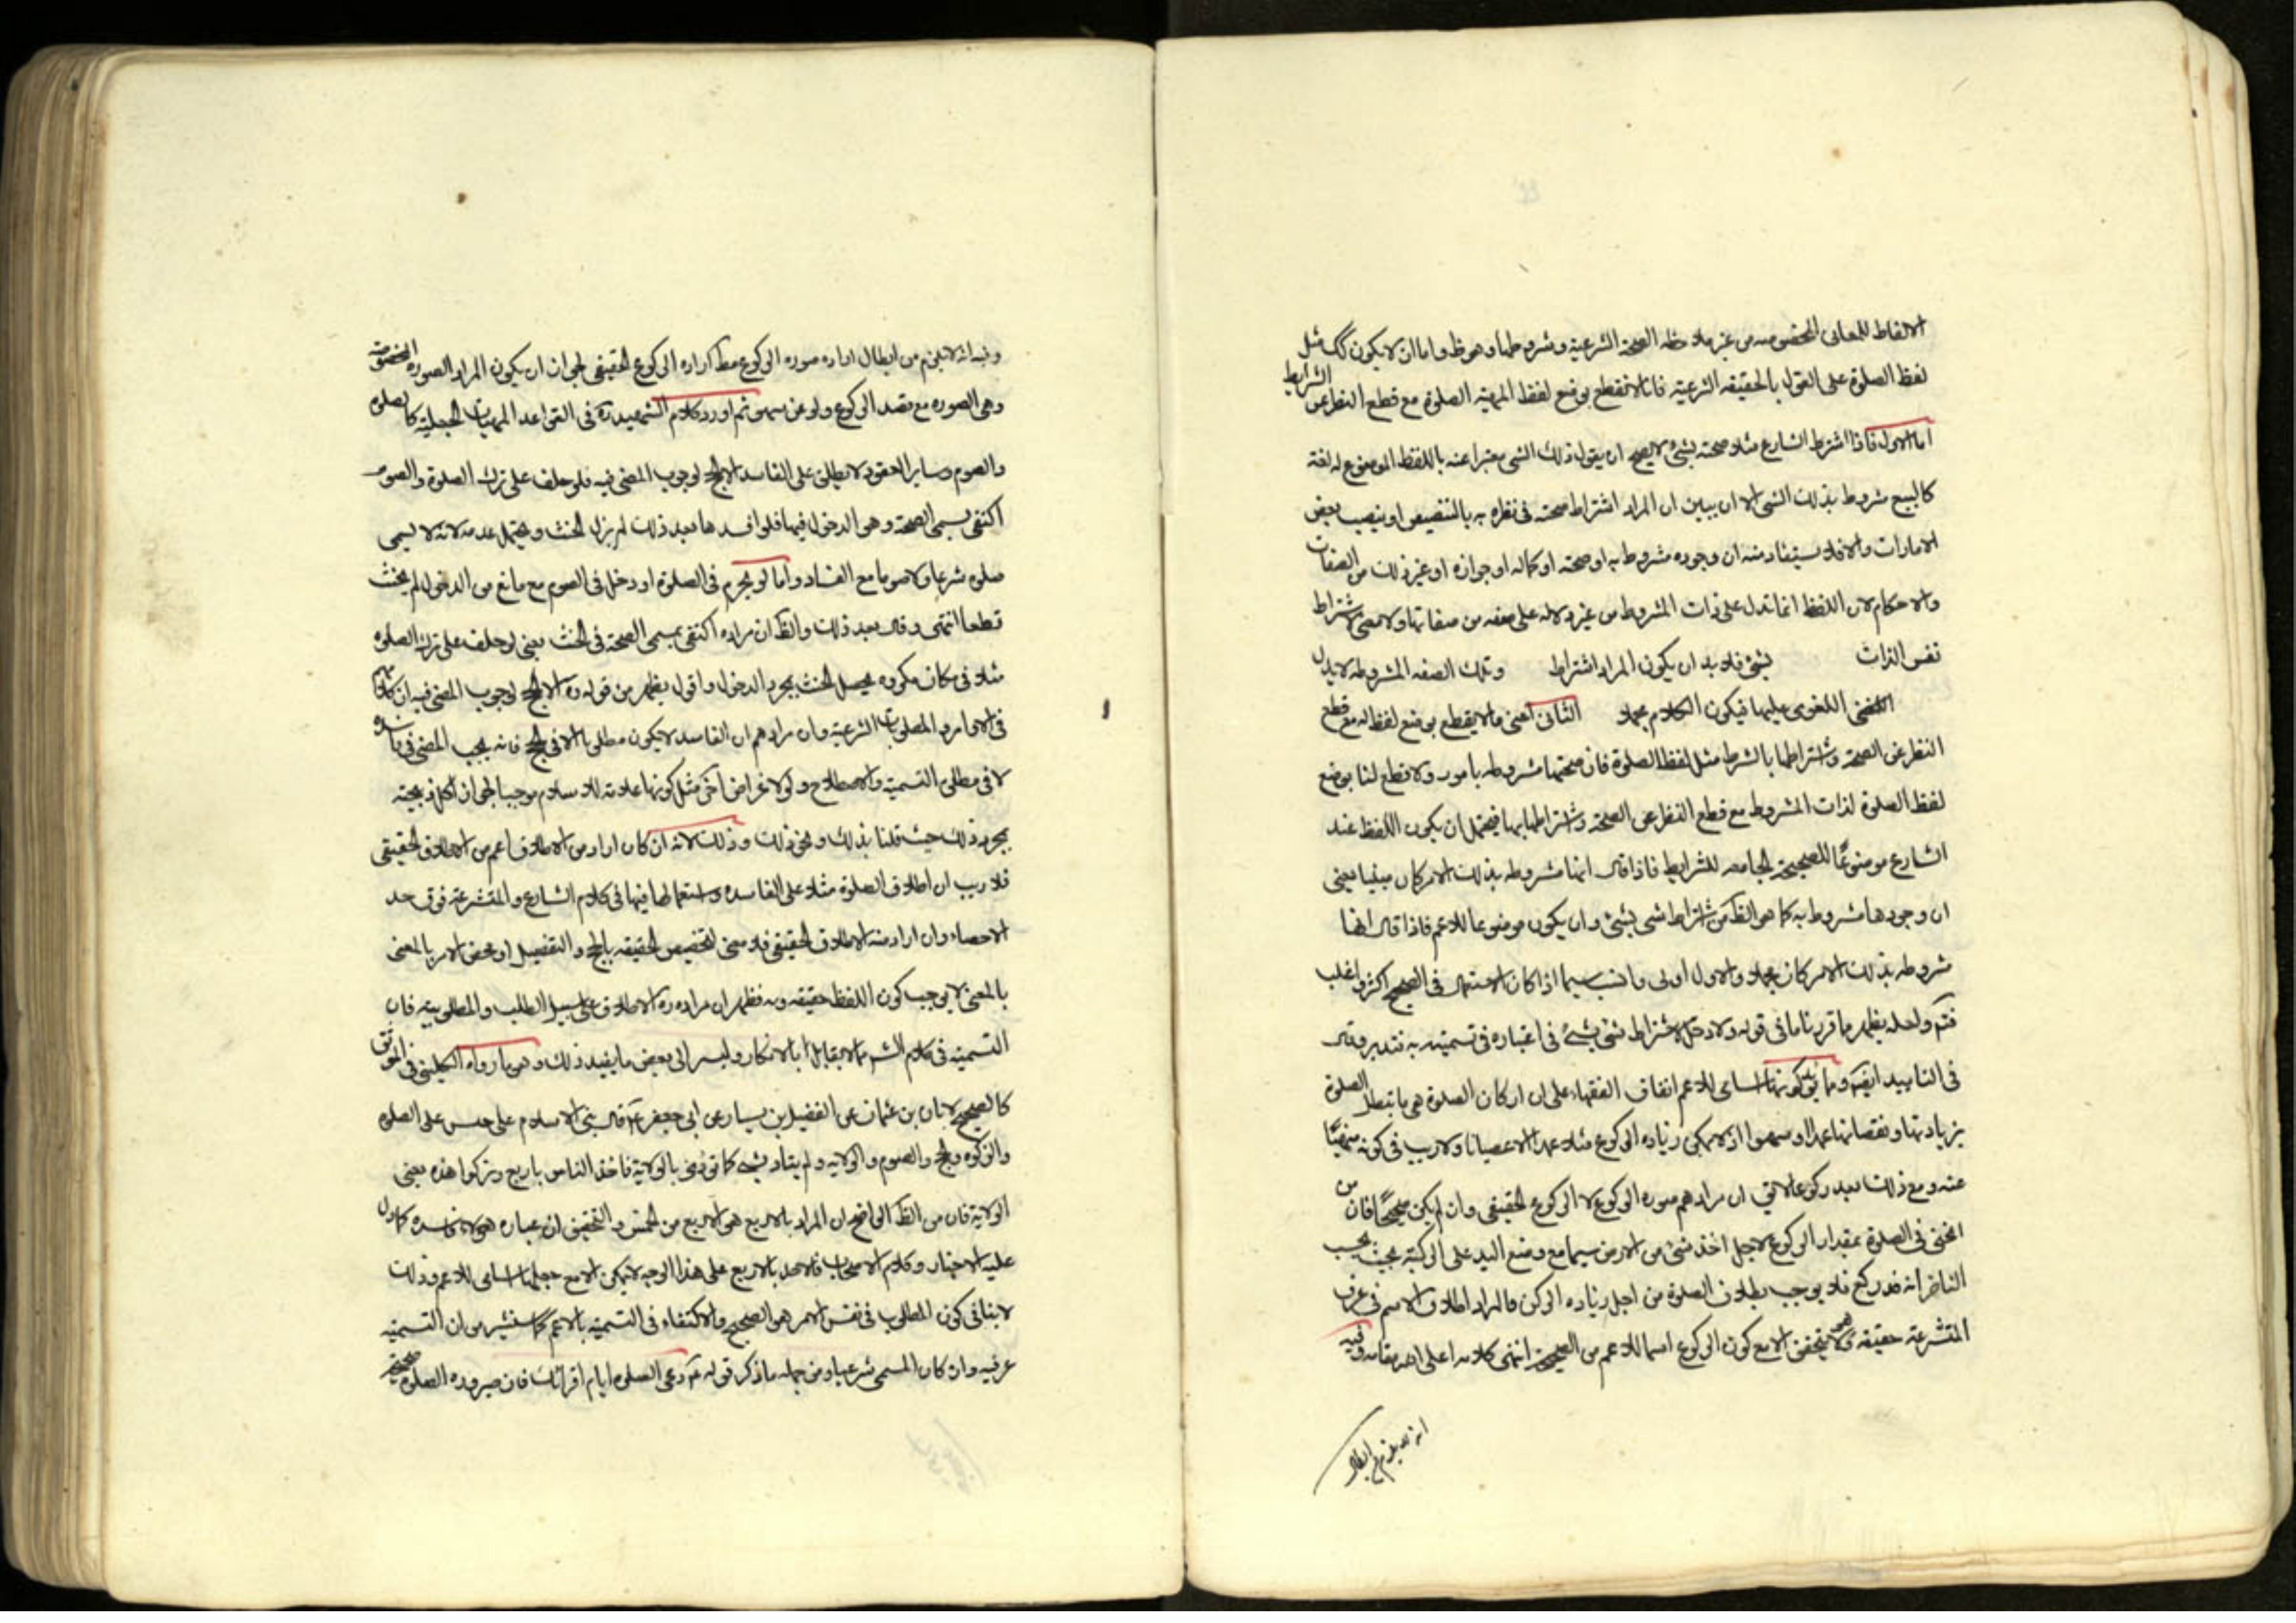 الالفاظ للمعانى المخصوصه من غير ملاحظه الصحة الشرعية وشروطها وهو ظ واما ان لا يكون كك مثل
لفظ الصلوة على القول بالحقيقه الشرعية فانا لا نقطع بوضع لفظ المهية الصلوة مع قطع النظر عن الشرايط
اما الاول فاذا اشترط الشارع مثلا صحته بشئ لا يصح ان يقول ذلك الشى معبرا عنه باللفظ الموضوع له لغة
كالبيع مشروط بذلك الشى الا ان يبين ان المراد اشتراط صحته فى نظره به بالتنصيص او بنصب بعض
الامارات والا فلا يستفاد منه ان وجوده مشروط به او صحته او كماله او جوازه او غير ذلك من الصفات
والاحكام لان اللفظ انما تدل على ذات المشروط من غير دلاله على صفه من صفاتها ولا معنى لاشتراط
نفس الذات بشئ فلا بد ان يكون المراد اشتراط وتلك الصفه المشروطه لا يدل
اللفظ اللغوى عليها فيكون الكلام مجملا الثانى اعنى ما لا يقطع بوضع لفظ له مع قطع
النظر عن الصحة واشتراطها بالشرط مثل لفظ الصلوة فان صحتها مشروطه بامور ولا قطع لنا بوضع
لفظ الصلوة لذات المشروط مع قطع النظر عن الصحة واشتراطها بها فيحتمل ان يكون اللفظ عند
الشارع موضوعًا للصحيحة الجامعه للشرايط فاذا قال انها مشروطه بذلك الامر كان مبنيا يعنى
ان وجودها مشروط به كما هو الظ من اشتراط شى بشئ وان يكون موضوعا للاعم فاذا قال انها
مشروطه بذلك الامر كان مجملا والاول اولى وانسب سيما اذا كان الاستعمال فى الصحيح اكثر واغلب
فتم ولعله يظهر ما قررنا ما فى قوله ولا دخل لاشتراط شئ بشئ فى اعتباره فى تسميته به فتدبر وقال
فى التاييد ايضا ومما يؤيد كونها اسامى للاعم اتفاق الفقهاء على ان اركان الصلوة هى ما تبطل الصلوة
بزيادتها ونقصانها عمدا او سهوا اذ لا يمكن زياده الركوع مثلا عمدا الا عصيانا ولا ريب فى كونه منهيًا
عنه ومع ذلك يعد ركوعا لا يق ان مرادهم صوره الركوع لا الركوع الحقيقى وان لم يكن صحيحًا فان من
انحنى فى الصلوة بمقدار الركوع لاجل اخذ شئ من الارض سيما مع وضع اليد على الركبة بحيث يحسب
الناظر انه قد ركع فلا يوجب بطلان الصلوة من اجل زياده الركن فالمراد اطلاق الاسم فى عرف
المتشرعة حقيقه وهو لا يتحقق الا مع كون الركوع اسما للاعم من الصحيح انتهى كلامه اعلى الله مقامه وفيه
انه لا يلزم من ابطال
وفيه انه لا يلزم من ابطال اراده صوره الركوع مط اراده الركوع الحقيقى لجوان ان يكون المراد الصوره المخصوصه
وهى الصوره مع قصد الركوع ولو عن سهو ثم اورد كلام الشهيد ره فى القواعد المهيات الجعلية كالصلوه
والصوم وساير العقود لا يطلق على الفاسد الا الحج لوجوب المضى فيه فلو حلف على ترك الصلوة والصوم
اكتفى بمسمى الصحة وهو الدخول فيها فلو افسدها بعد ذلك لم يزل الحنث ويحتمل عدمه لانه لا يسمى
صلوه شرعا ولا صوما مع الفساد واما لو تحرم فى الصلوة او دخل فى الصوم مع مانع من الدخول لم يحنث
قطعا انتهى وقال بعد ذلك والظ ان مراده اكتفى بمسمى الصحة فى الحنث يعنى لو حلف على ترك الصلوه
مثلا فى مكان مكروه يحصل الحنث بمجرد الدخول واقول يظهر من قوله ره الا الحج لوجوب المضى فيه ان كلامهم
فى الاوامر والمطلوبات الشرعية وان مرادهم ان الفاسد لا يكون مطلوبا الا فى الحج فانه يجب المضى فى فاسده
لا فى مطلق التسمية والاصطلاح ولو لاغراض اخر مثل كونها علامة للاسلام موجبا لجواز اكل ذبيحته
بمجرد ذلك حيث قلنا بذلك ونحو ذلك وذلك لانه ان كان اراد من الاطلاق اعم من الاطلاق الحقيقى
فلا ريب ان اطلاق الصلوة مثلا على الفاسده واستعمالها فيها فى كلام الشارع والمتشرعة فوق حد
الاحصاء وان اراد منه الاطلاق الحقيقى فلا معنى لتخصيص الحقيقه بالحج والتفصيل او محض الامر بالمضى
بالمعنى لا يوجب كون اللفظ حقيقه فيه فظهر ان مراده ره الاطلاق على سبيل الطلب والمطلوبيه فان
التسمية فى كلام الشرع مما لا يقابل بالانكار وليسر الى بعض ما يفيد ذلك وهو ما رواه الكلينى فى الموثق
كالصحيح لابان بن عثمان عن الفضيل بن يسار عن ابى جعفر ع قال بنى الاسلام على خمس على الصلوه
والزكوه والحج والصوم والولايه ولم يناد بشئ كما نودى بالولاية فاخذ الناس باربع وتركوا هذه يعنى
الولاية فان من الظ الواضح ان المراد بالاربع هو الاربع من الخمس والتحقيق ان عباره هولاء فاسده كما دل
عليه الاخبار وكلام الاصحاب فالاخذ بالاربع على هذا الوجه لا يمكن الا مع جعلها اسامى للاعم وذلك
لا ينافى كون المطلوب فى نفس الامر هو الصحيح والاكتفاء فى التسميه بالاعم كما سنشير من ان التسميه
عرفيه وان كان المسمى شرعيا ومن جمله ما ذكر قوله ع دعى الصلوه ايام اقرائك فان صيروره الصلوة صحيحه